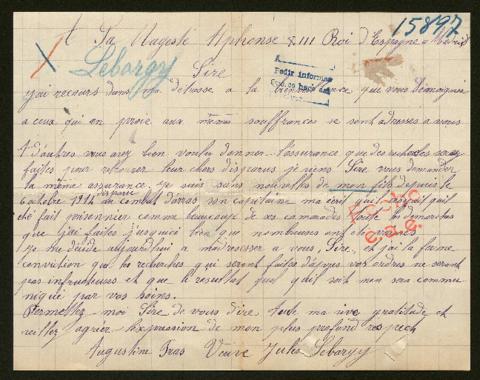 15897
A Sa Majesté Alphonse XIII Roi d'Espagne à Madrid
X Leborgy
Sire
j'ai recours dans ma détresse a la bienveillance que vous témoignez
Pedir informes
a ceux qui en proie aux mêmes souffrances se sont adressés a vous
d'autres vous avez bien voulu donner l'assurance que des recherches soient
faites pour retrouver leurs chers disparus je viens Sire vous demander
la même assurance je suis sans nouvelles de mon fils depuis le
disparu
6 octobre 1914 au combat d'Arras son capitaine ma écrit qu'il avait
été fait prisonnier comme beaucoup de ses camarades toute les démarches
que j'ai faites jusqu'ici bien que nombreuses ont été vaines
je me décide aujourd'hui a m'adresser a vous, Sire, et j'ai la ferme
conviction que les recherches qui seront faites d'après vos ordres ne seront
pas infructueuses et que le résultat quel qu'il soit me sera commu
niqué par vos soins
Permettez-moi Sire de vous dire toute ma vive gratitude et
veillez agréer l'expression de mon plus profond respect
Augustine Fras Veuve Jules Leborgy